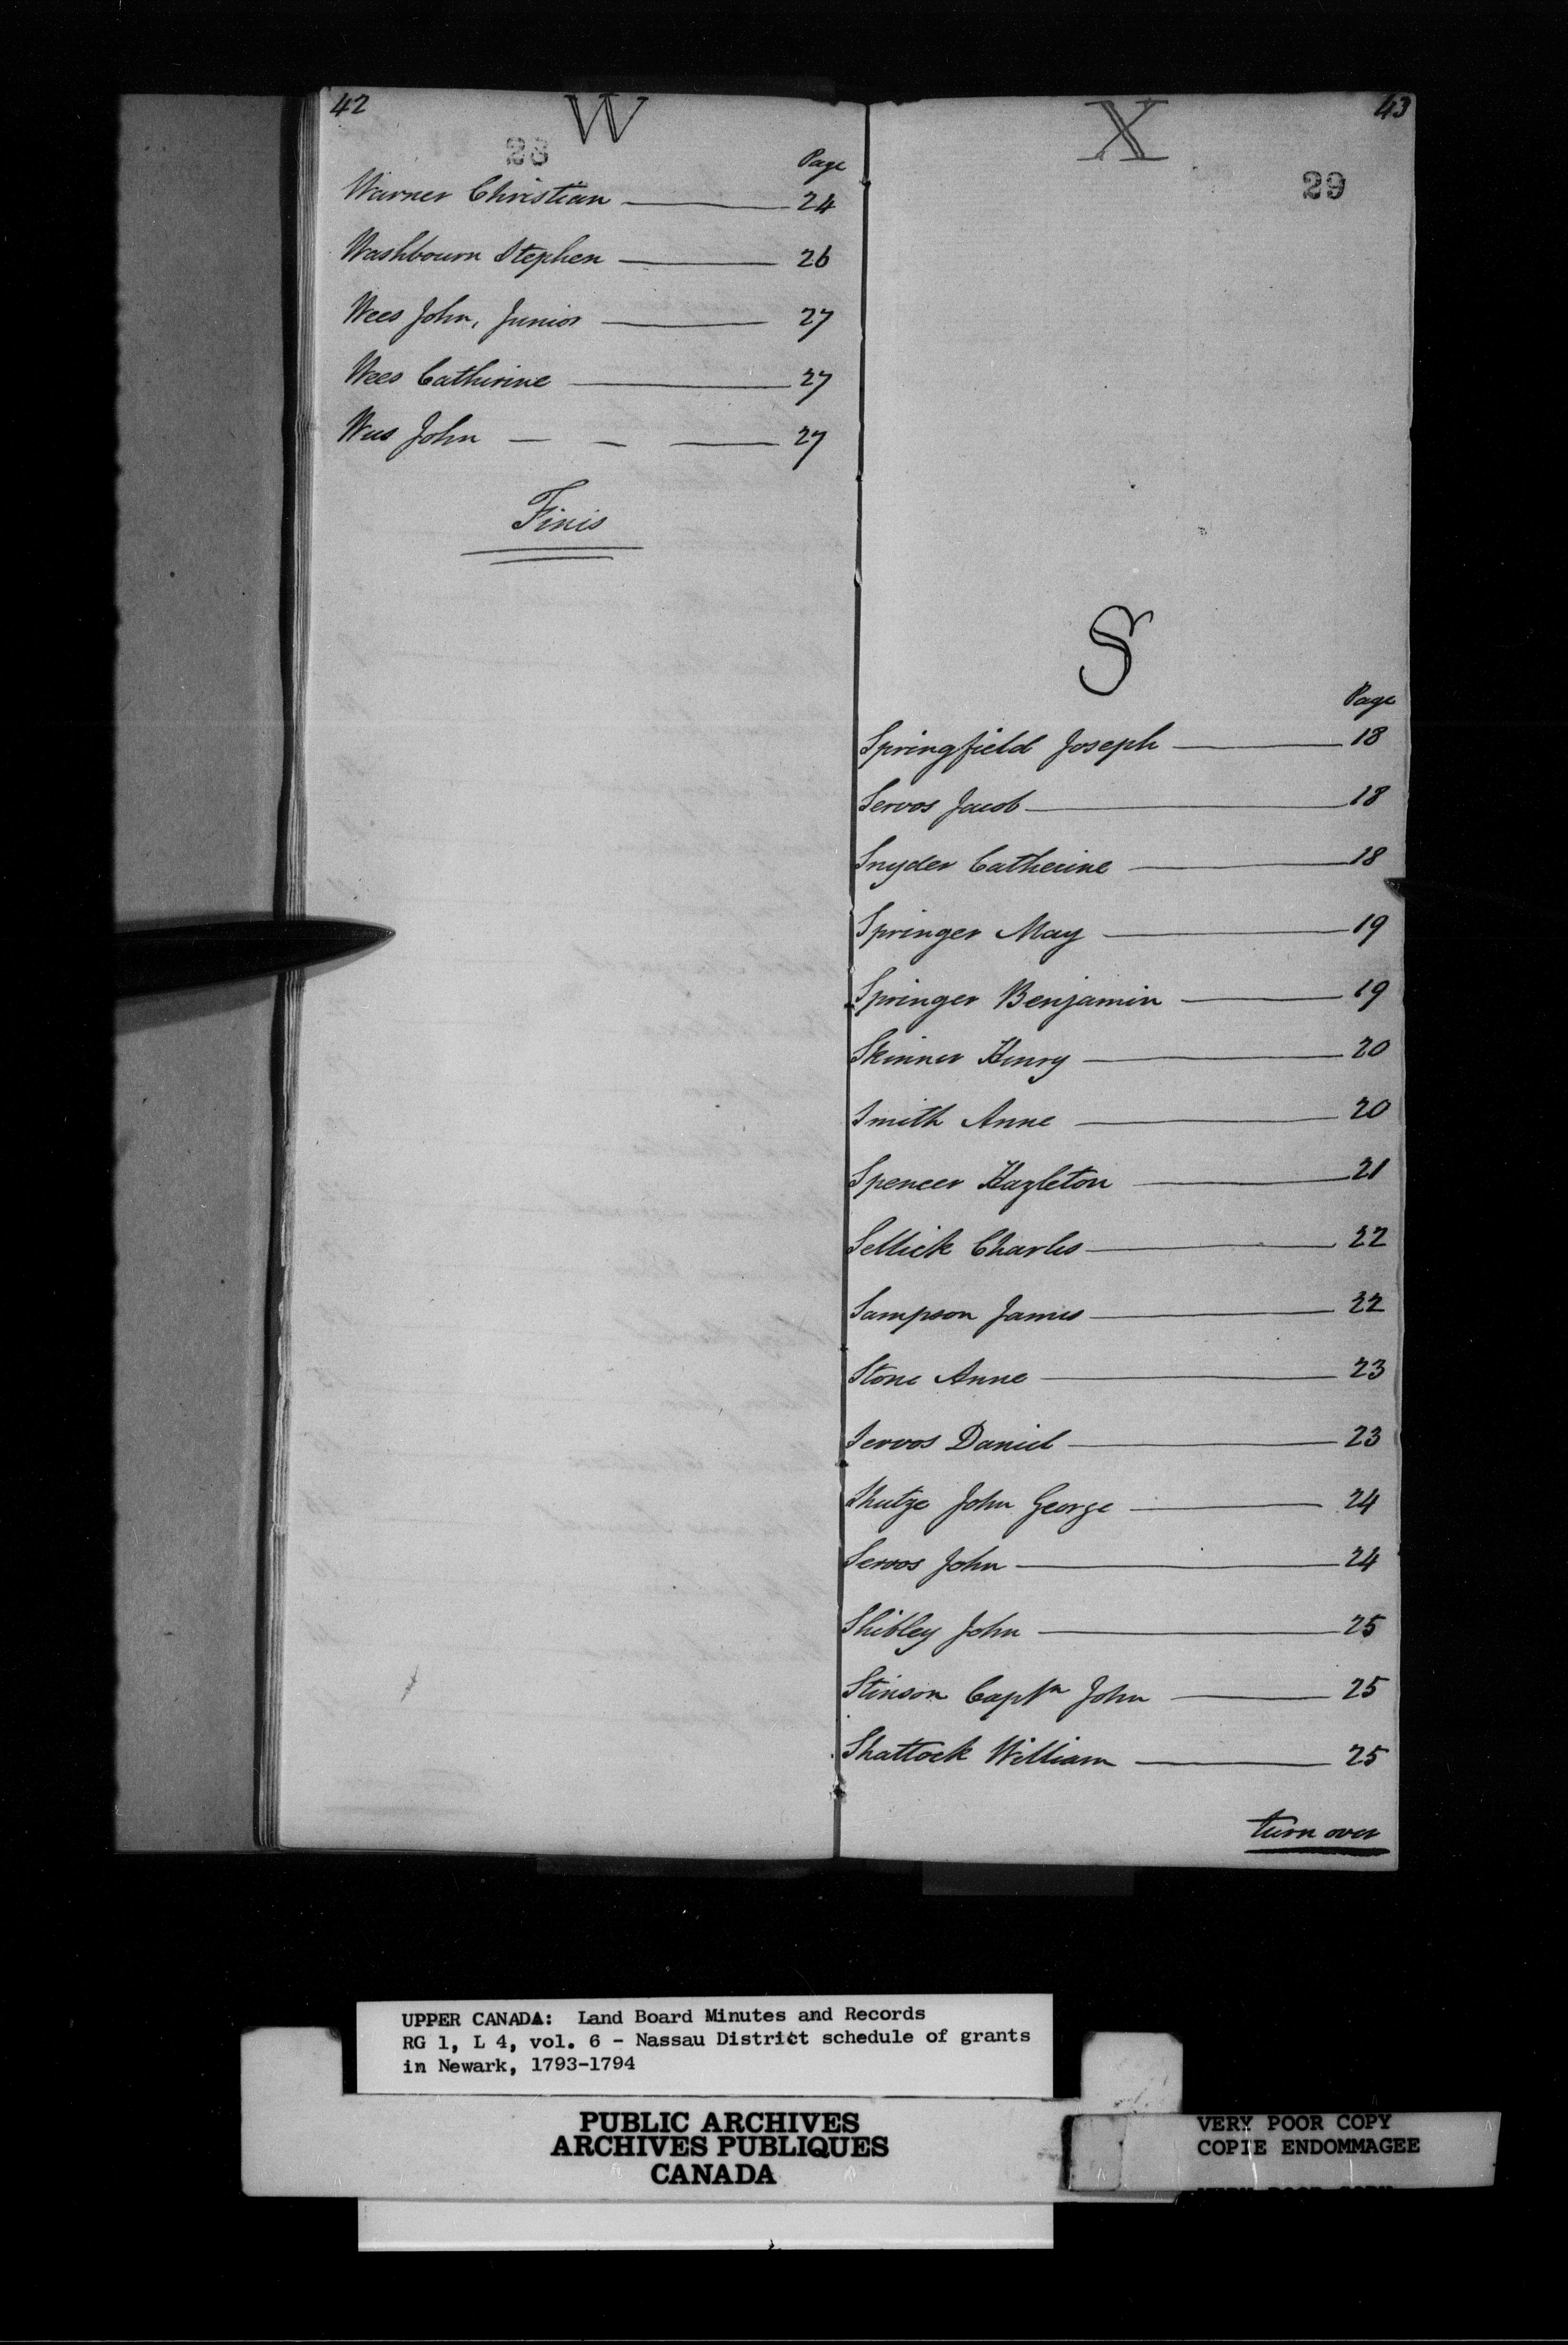 42
W
28
Page
Warner Christian 24
Washbourn Stephen 26
Wees John, Junior 27
Wees Catherine 27
Wees John 27
Finis
43
X
29
S
Page
Springfield Joseph 18
Servos Jacob 18
Snyder Catherine 18
Springer May 19
Springer Benjamin 19
Skinner Henry 20
Smith Anne 20
Spencer Hazleton 21
Sellick Charles 22
Sampson James 22
Stone Anne 23
Servos Daniel 23
Shutze John George 24
Servos John 24
Shibley John 25
Stinson Captn John 25
Shattock William 25
turn over
UPPER CANADA: Land Board Minutes and Records
RG 1, L 4, vol. 6 - Nassau District schedule of grants
in Newark, 1793-1794
PUBLIC ARCHIVES
ARCHIVES PUBLIQUES
CANADA
VERY POOR COPY
COPIE ENDOMMAGEE